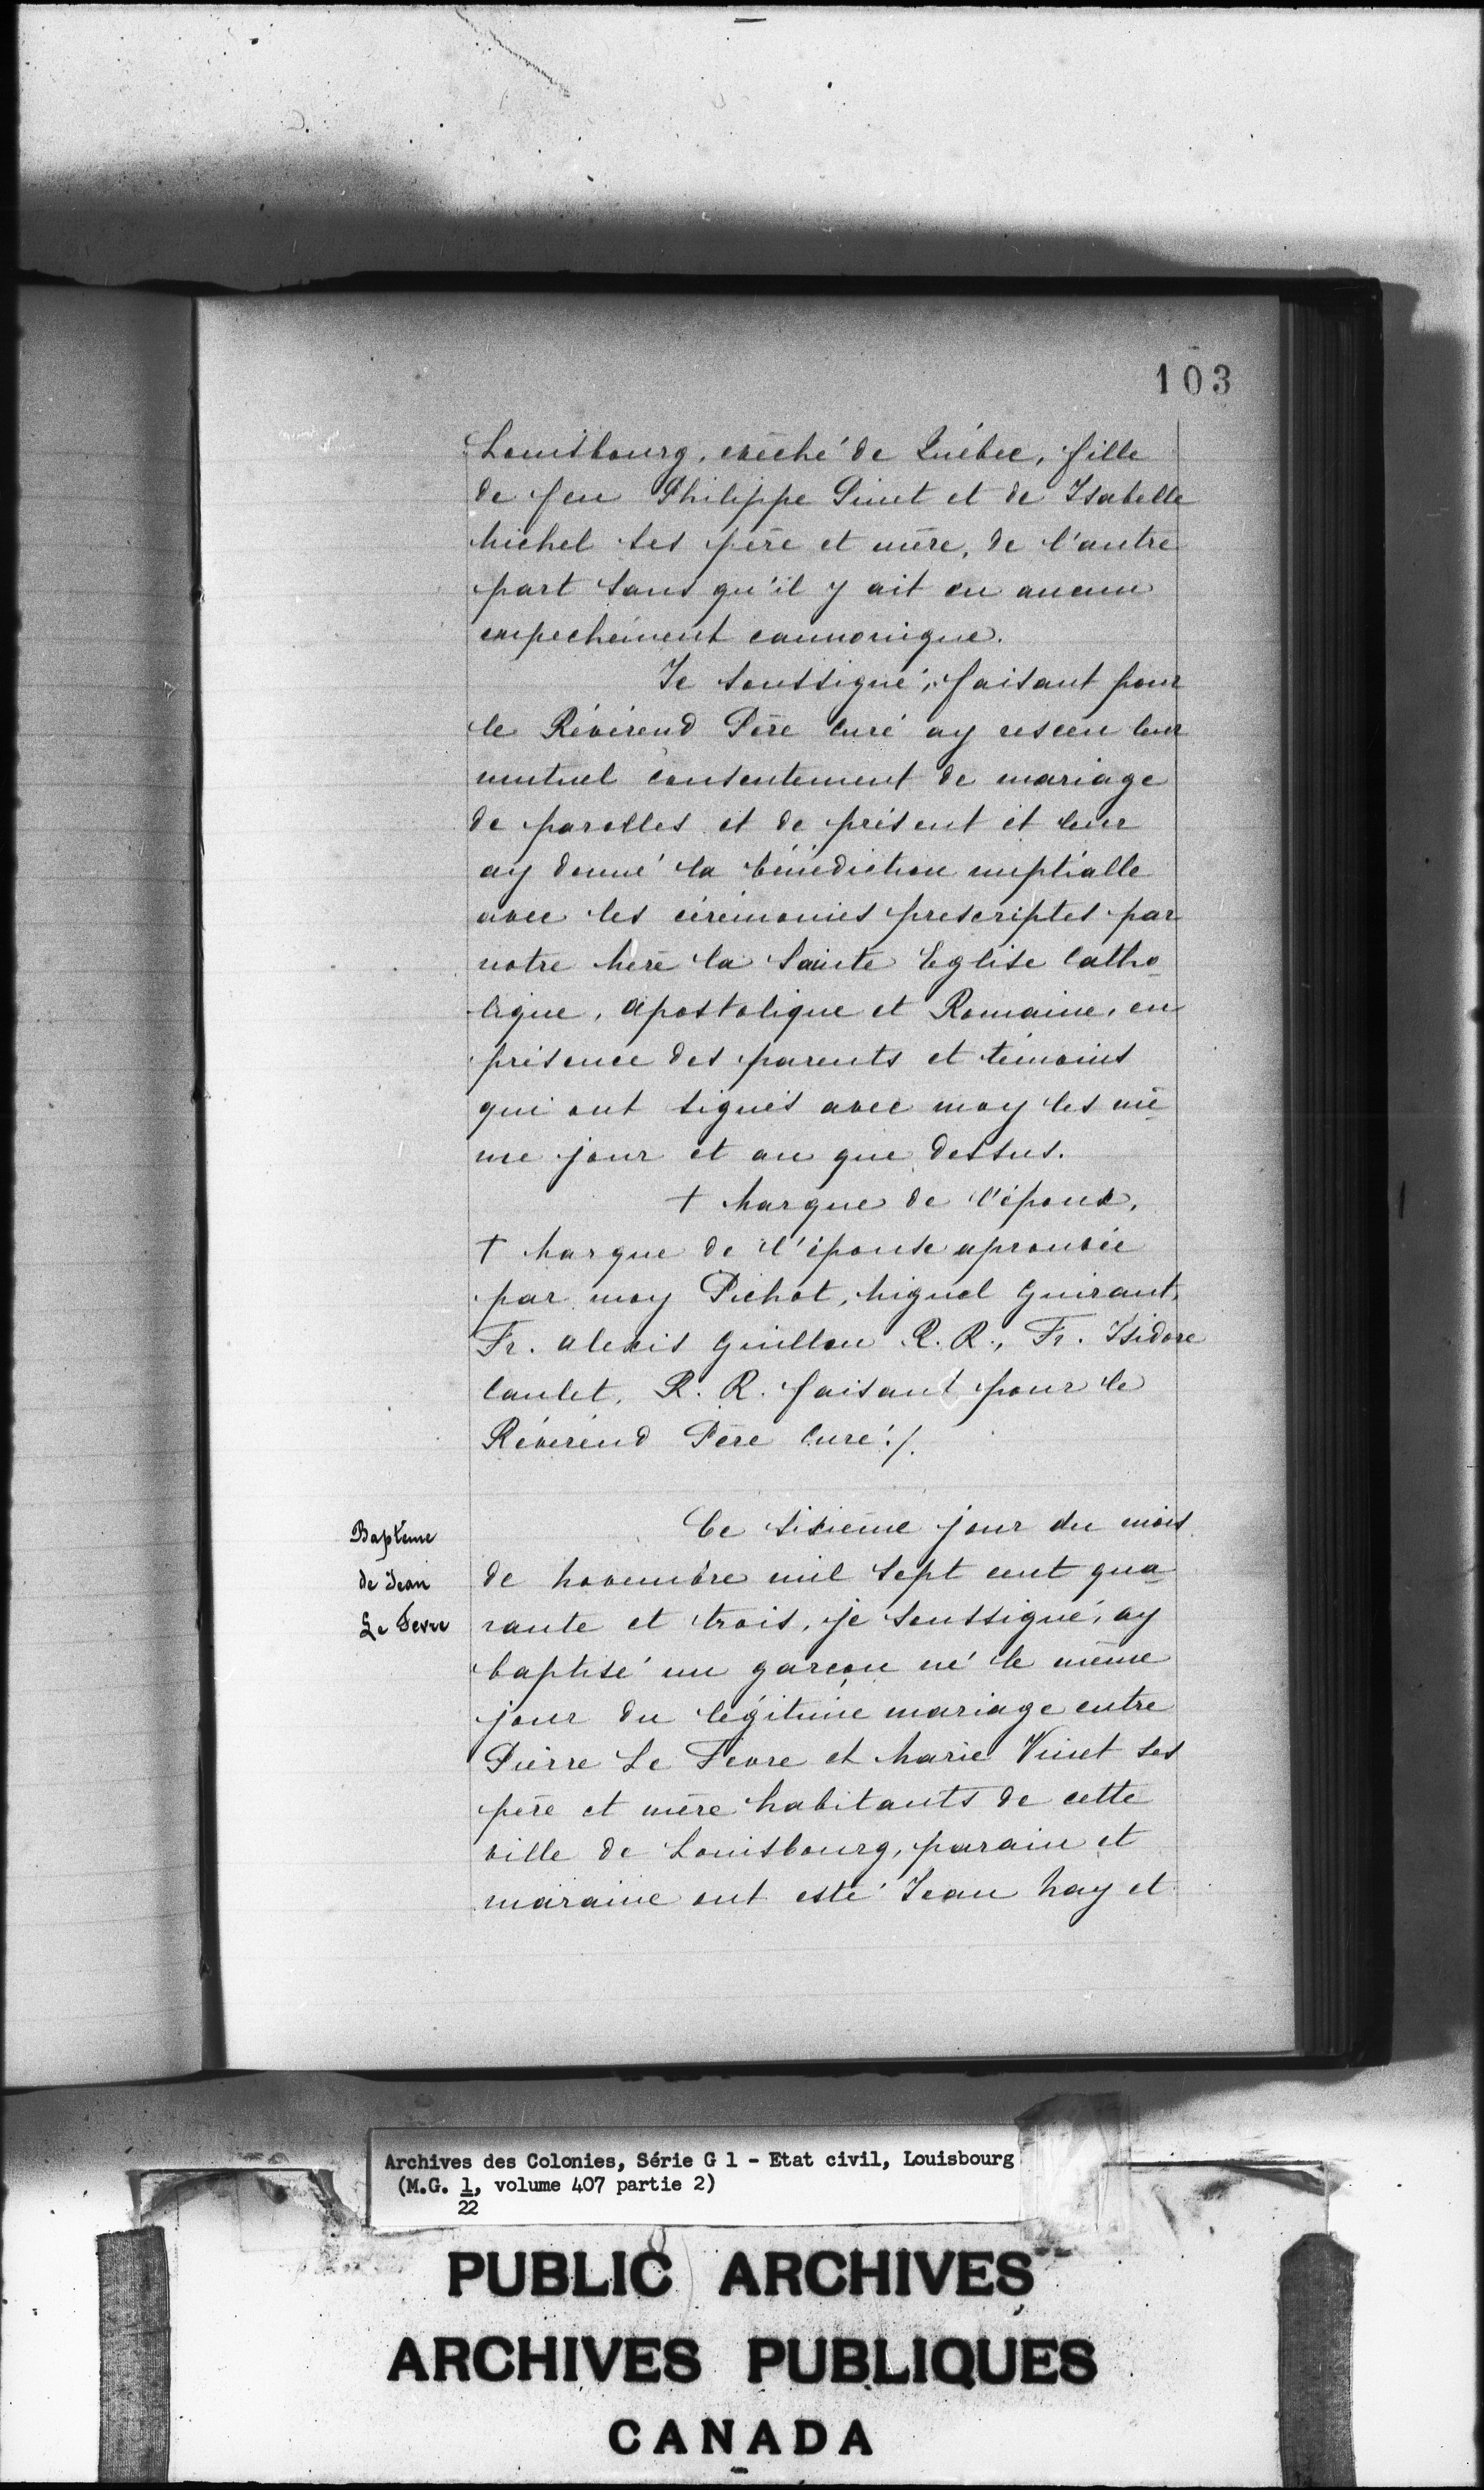 103
Louisbourg, evêché de Québec, fille
de feu Philippe Pinet et de Isabelle
Michel ses père et mère, de l'autre
part sans qu'il y ait eu aucun
empechement cannonique.
Je soussigné, faisant pour
le Révérend Père Curé ay resceu leur
mutuel consentement de mariage
de parolles et de présent et leur
ay donné la bénédiction nuptialle
avec les cérémonies prescriptes par
notre Mère la Sainte Eglise Catho-
lique, Apostolique et Romaine, en
présence des parents et témoins
qui ont signés avec moy les mê-
me jour et an que dessus.
+ Marque de l'époux,
+ Marque de l'épouse aprouvée
par moy Pichot, Miguel Guiraut,
Fr. Alexis Guillou R. R., Fr. Isidore
Caulet, R. R. faisant pour le
Révérend Père Curé./.
Baptême
de Jean
Le Fevre
Ce sixième jour du mois
de Novembre mil sept cent qua-
rante et trois, je soussigné, ay
baptisé un garçon né le même
jour du légitime mariage entre
Pierre Le Fevre et Marie Vinet ses
père et mère habitants de cette
ville de Louisbourg, parain et
maraine ont esté Jean Hay et
Archives des Colonies, Série G 1 - Etat civil, Louisbourg
(M.G. 1, volume 407 partie 2)
22
PUBLIC ARCHIVES
ARCHIVES PUBLIQUES
CANADA